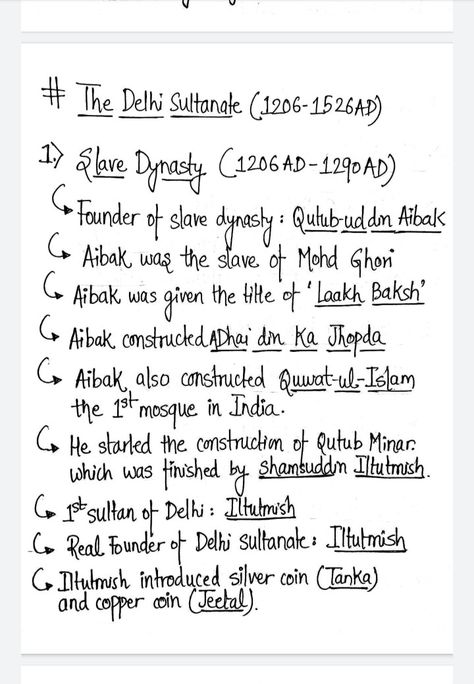 # The Delhi Sultanate (1206-1526AD)
1.) Slave Dynasty (1206AD-1290AD)
↳ Founder of slave dynasty : Qutub-ud din Aibak
↳ Aibak was the slave of Mohd Ghori
↳ Aibak was given the title of 'Laakh Baksh'
↳ Aibak constructed ADhai din Ka Jhopda
↳ Aibak also constructed Quwat-ul-Islam
the 1st mosque in India.
↳ He started the construction of Qutub Minar.
which was finished by Shamsuddin Iltutmish.
↳ 1st sultan of Delhi : Iltutmish
↳ Real Founder of Delhi Sultanate : Iltutmish
↳ Iltutmish introduced silver coin (Tanka)
and copper coin (Jeetal).